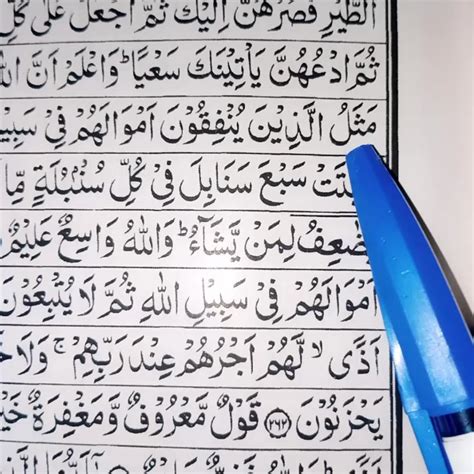 الطَّيْرِ فَصُرْهُنَّ اِلَيْكَ ثُمَّ اجْعَلْ عَلٰى كُلِّ
ثُمَّ ادْعُهُنَّ يَاْتِيْنَكَ سَعْيًا ؕ وَاعْلَمْ اَنَّ
مَثَلُ الَّذِيْنَ يُنْفِقُوْنَ اَمْوَالَهُمْ فِيْ
سَبْعَ سَنَابِلَ فِيْ كُلِّ سُنْۢبُلَةٍ
لِمَنْ يَّشَآءُ ؕ وَاللّٰهُ وَاسِعٌ عَلِيْمٌ
اَمْوَالَهُمْ فِيْ سَبِيْلِ اللّٰهِ ثُمَّ لَا يُتْبِعُوْنَ
اَذًى ۙ لَّهُمْ اَجْرُهُمْ عِنْدَ رَبِّهِمْ ۚ وَلَا
يَحْزَنُوْنَ ﴿۲۶۲﴾ قَوْلٌ مَّعْرُوْفٌ وَّمَغْفِرَةٌ